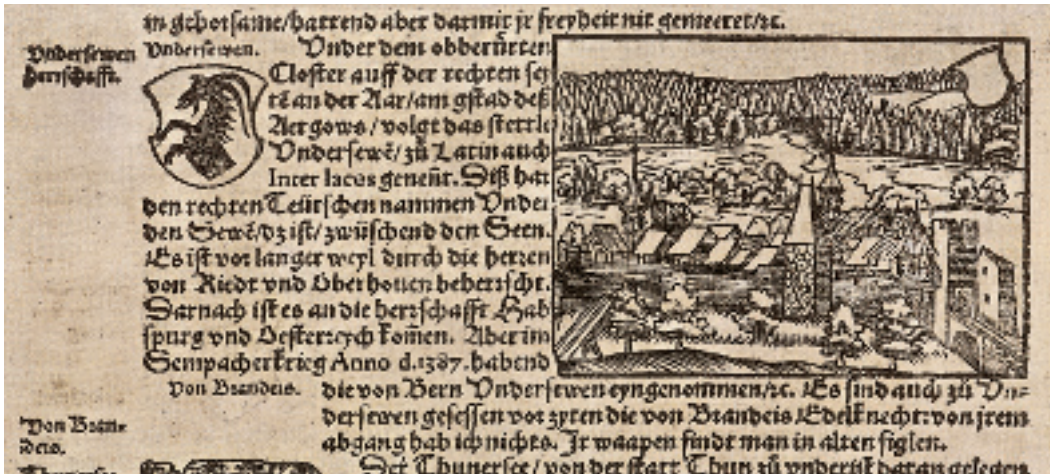 in gehorsame/hattend aber darmit jr freyheit nit gemeeret/ꝛc.
Vnderseewen
herrschafft.
Vnderseewen.
Vnder dem obberürten
Closter auff der rechten sey
tē an der Aar/am gstad deß
Aergows/volgt das stettle
Vndersewē/zů Latin auch
Inter lacus geneñt. Diß hat
den rechten Teütschen nammen Vnder
den Sewē/dz ist/zwüschend den Seen.
Es ist vor langer weyl durch die herren
von Riedt vnd Oberhouen beherrscht.
Darnach ist es an die herrschafft Hab
spurg vnd Oesterreych kom̄en. Aber im
Sempacherkrieg Anno d. 1387. habend
Von Brandeis.
die von Bern Vndersewen eyngenommen/ꝛc. Es sind auch zů Vn-
dersewen gesessen vor zyten die von Brandeis Edelknecht: von jrem
Von Bran-
deis.
abgang hab ich nichts. Jr waapen findt man in alten siglen.
Thunersee
Der Thunersee/von der statt Thun zů vnderist daran gelegen